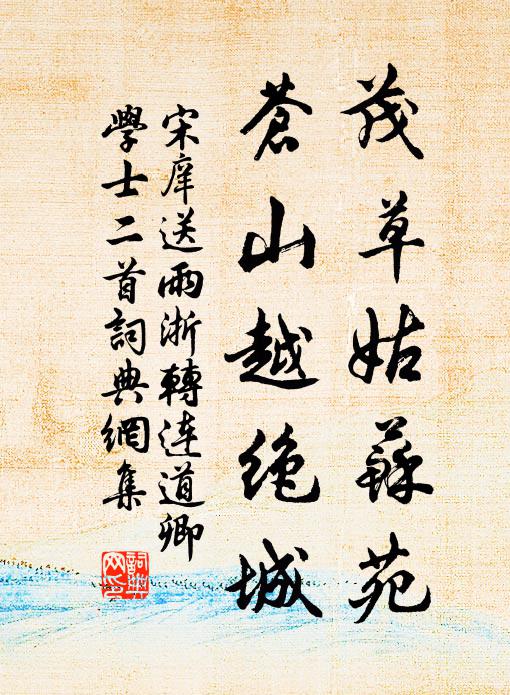 茂草姑蘇苑
蒼山越絕城
宋庠送兩浙轉連道卿
學士二首詞典網集